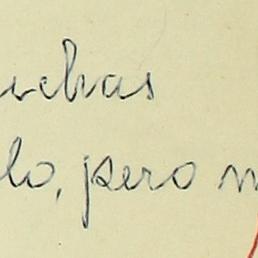 uchas
lo, pero n